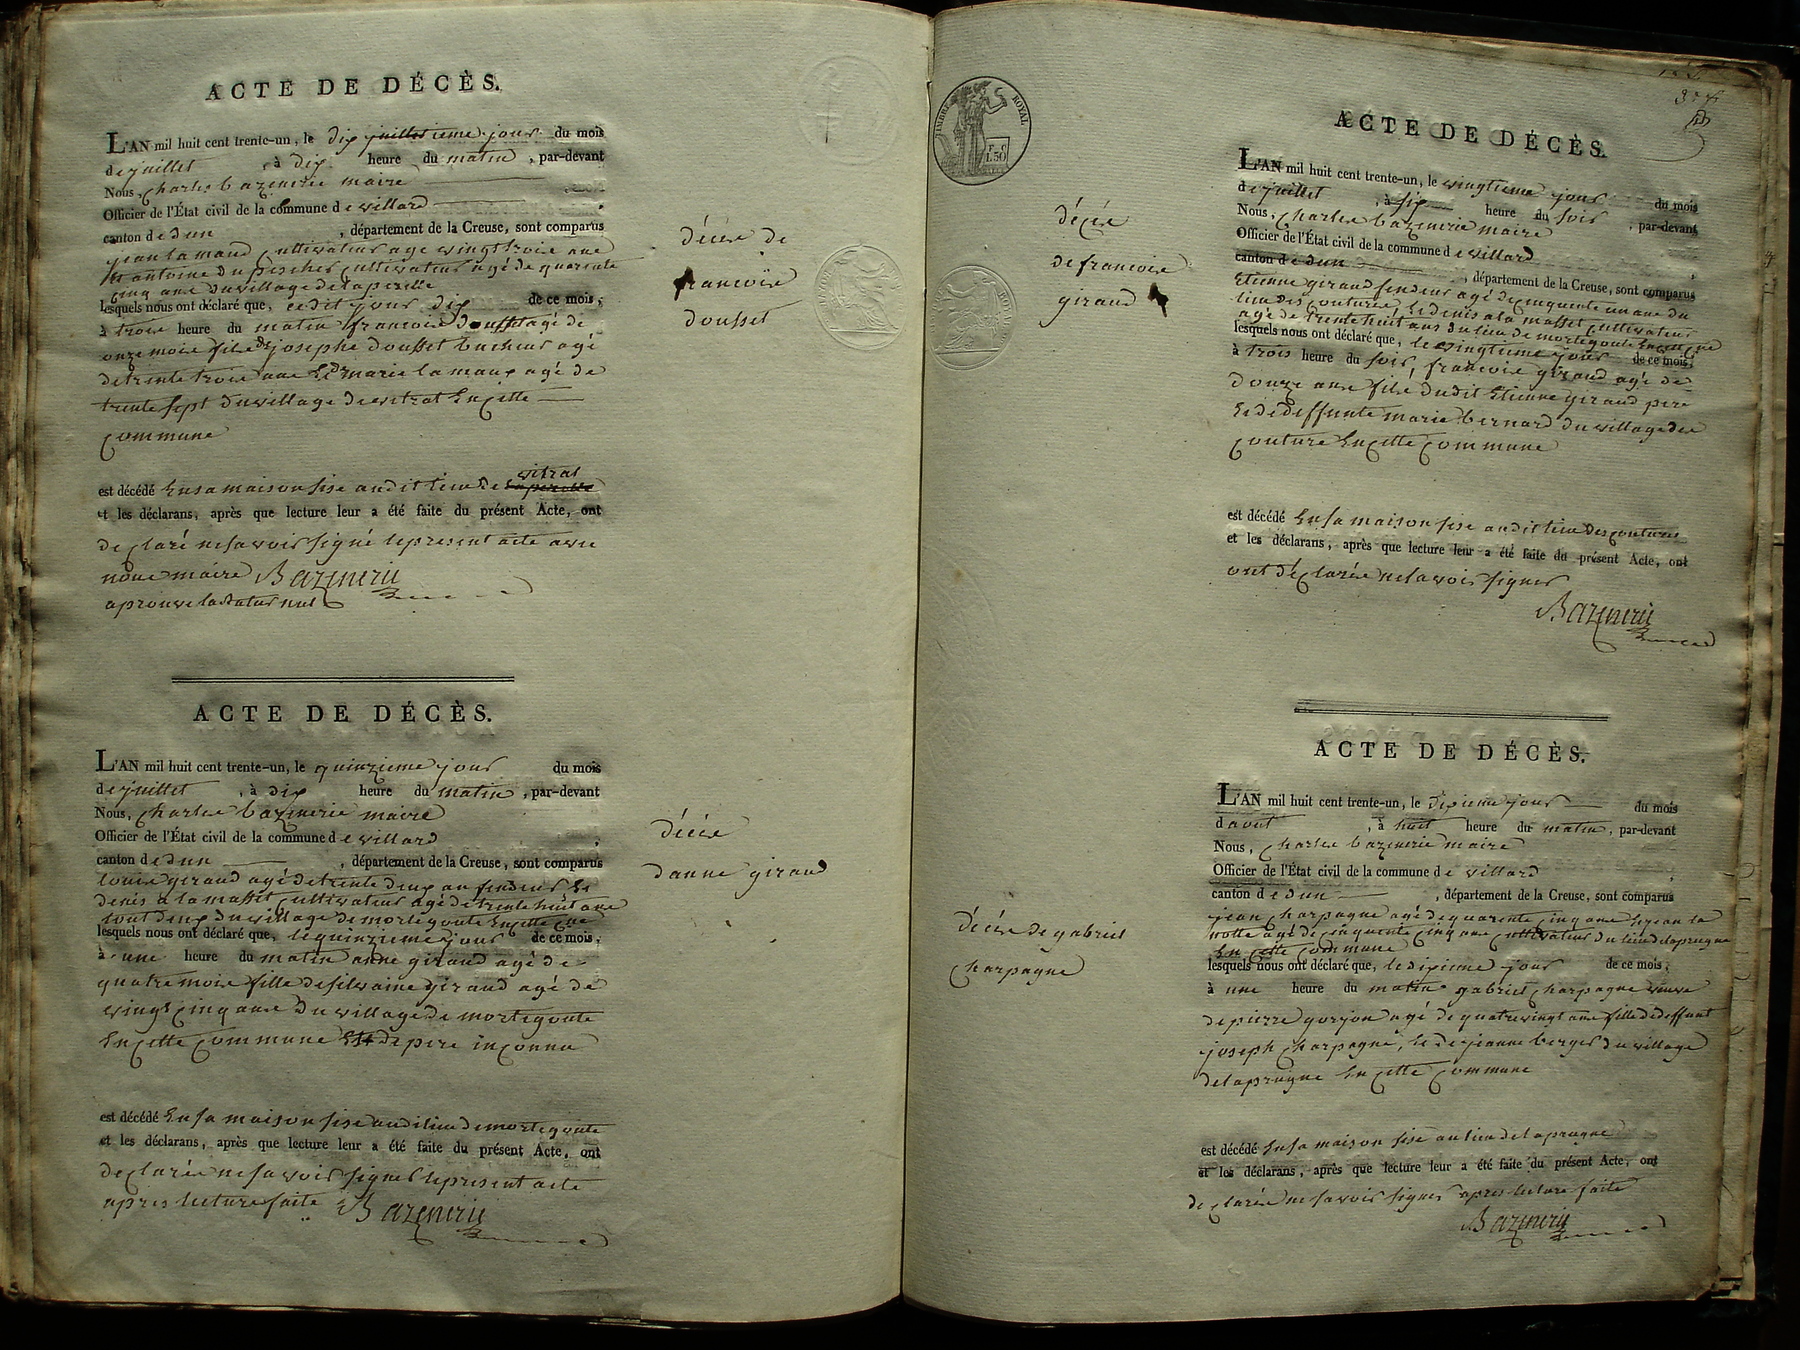 ACTE DE DÉCÈS.
L'AN mil huit cent trente-un, le dix juilletieme jour du mois
de juillet, à dix heure du matin, par-devant
Nous, charles bazenerie maire
Officier de l'État civil de la commune de villard
canton de dun, département de la Creuse, sont comparus
jean lamaud cultivateur age vingt troie ans
antoine du cultivateur agé de quarente
cinq ans du village de laperelle
lesquels nous ont déclaré que, cedit jour dix de ce mois,
à troie heure du matin francoise dousset agé de
onze moie fille de josephe dousset bucheur agé
de trente troie ans Et de marie lamaux agé de
trente sept du village de vitrat En cette
commune
est décédé En sa maison sise audit lieu de laperelle vitrat
et les déclarans, après que lecture leur a été faite du présent Acte, ont
declaré ne savoir signé le present acte avec
nous maire Bazenerie
aprouve la rature nul
décèse de
francoise
dousset
ACTE DE DÉCÈS.
L'AN mil huit cent trente-un, le quinzieme jour du mois
de juillet, à dix heure du matin, par-devant
Nous, charles bazenerie maire
Officier de l'État civil de la commune de villard
canton de dun, département de la Creuse, sont comparus
louise giraud agé de trente deux an fendeur Et
denis a la masset cultivateur agé de trente huit ans
tout deux du village de mortegoute En cette cne
lesquels nous ont déclaré que, le quinzieme jour de ce mois,
à une heure du matin anne giraud agé de
quatre moie fille de silvaine giraud agé de
vingt cinq ans du village de mortegoute
En cette commune Et de pere inconnu
est décédé En sa maison sise audi lieu de mortegoute
et les déclarans, après que lecture leur a été faite du présent Acte, ont
declarée ne savoir signer le present acte
apres lecture faite Bazenerie
décèse
danne giraud
TIMBRE ROYAL
1.50
ACTE DE DÉCÈS.
L'AN mil huit cent trente-un, le vingtieme jour du mois
de juillet, à six heure du soir, par-devant
Nous, charles bazenerie maire
Officier de l'État civil de la commune de villard
canton de dun, département de la Creuse, sont comparus
Etienne giraud fendeur agé de cinquente un ans du
lieu des couturee Et denis a la masset cultivateur
agé de trente huit ans du lieu de mortegoute En cette cne
lesquels nous ont déclaré que, le vingtieme jour de ce mois,
à trois heure du soir, francoise giraud agé de
douze ans fille dudit Etienne giraud pere
Et de deffunte marie bernard du village des
couture En cette commune
est décédé En sa maison sise audit lieu des coutures
et les déclarans, après que lecture leur a été faite du présent Acte, ont
ont déclarée ne savoir signer
Bazenerie
décèse
de francoise
giraud
ACTE DE DÉCÈS.
L'AN mil huit cent trente-un, le dixieme jour du mois
d aout, à huit heure du matin, par-devant
Nous, charles bazenerie maire
Officier de l'État civil de la commune de villard
canton de dun, département de la Creuse, sont comparus
jean charpagne agé de quarente cinq ans Et jean la
notte agé de cinquente cinq ans cultivateur du lieu de laprugne
En cette commune
lesquels nous ont déclaré que, le dixieme jour de ce mois,
à une heure du matin gabriel charpagne veuve
de pierre gorjon agé de quatre vingt ans fille de deffunt
joseph charpagne, Et de jeanne berger du village
de laprugne En cette commune
est décédé En sa maison sise au lieu de laprugne
et les déclarans, après que lecture leur a été faite du présent Acte, ont
declarée ne savoir signer apres lecture faite
Bazenerie
décèse de gabriel
charpagne